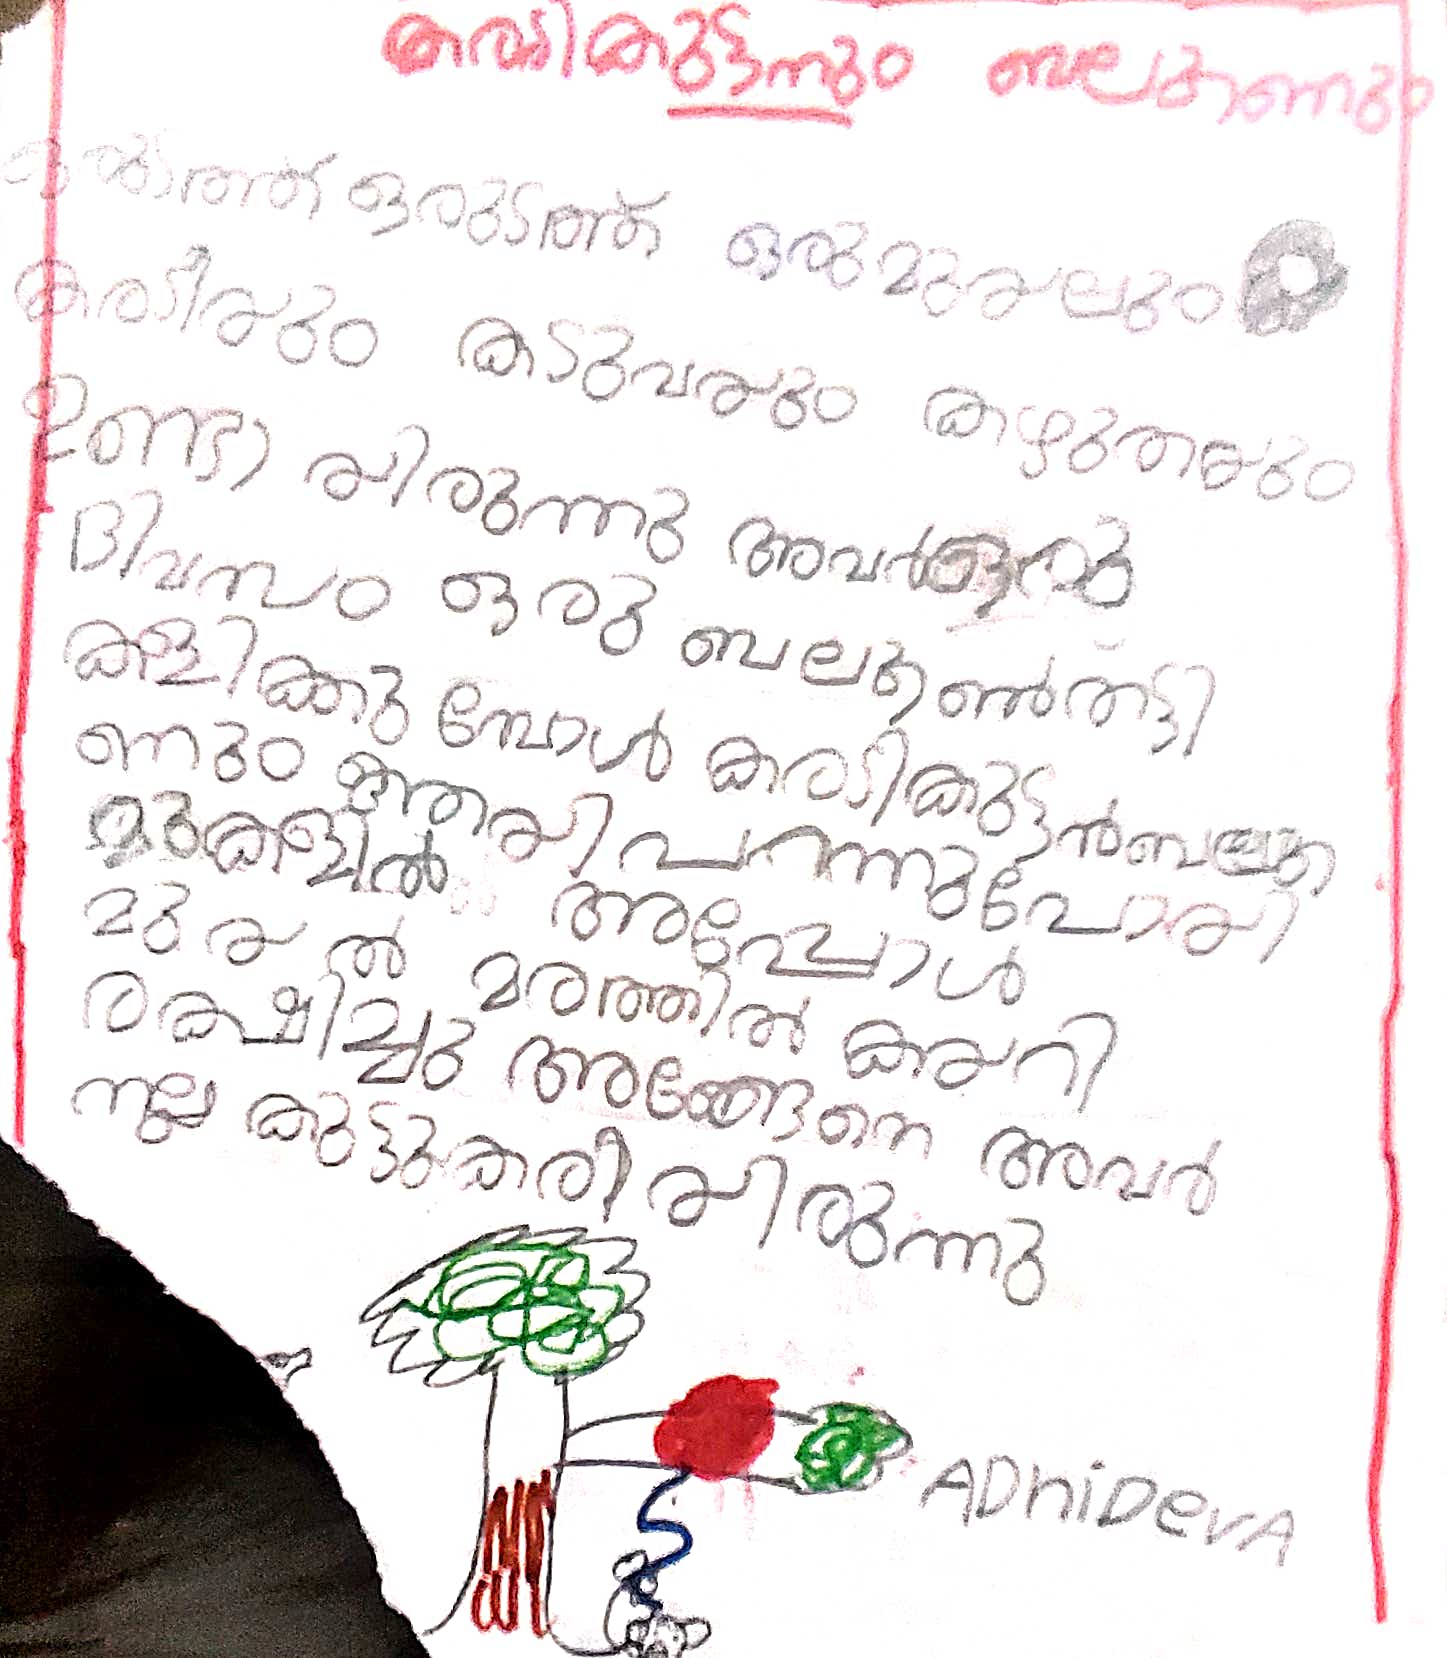 കരടികുട്ടനും ബലൂണും
ഒരുടത്ത് ഒരു മുയലും
കരടിയും കടുവയും കഴുതയും
ഉണ്ടാ യിരുന്നു അവർ ഒരു
ദിവസം ഒരു ബലൂൺതട്ടി
കളിക്കു മ്പോൾ കരടികുട്ടൻ ബലൂ
ണും ആയി പറന്നുപോയി
മുകളിൽ അപ്പോൾ
മുയൽ മരത്തിൽ കയറി
രക്ഷിച്ചു അങ്ങേനെ അവർ
നല്ല കുട്ടുകരി യിരുന്നു
ADhiDevA